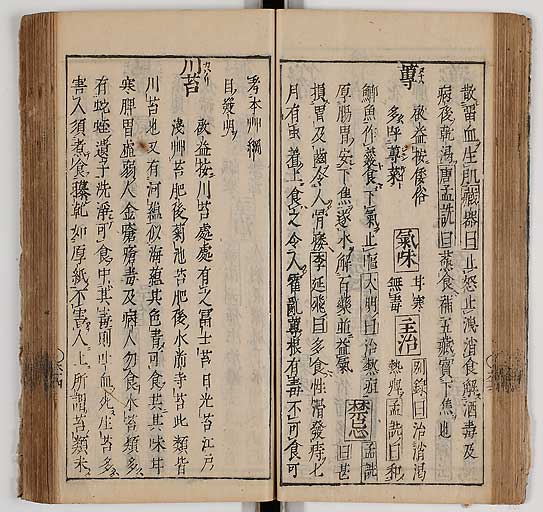 散留血生肌藏器曰止怒止洩消食解酒毒及
病後乾渇唐孟詵曰蒸食補五藏實下焦也
蓴
啟益按倭俗
多呼蓴菜
氣味
甘寒
無毒
主治
別錄曰治消渇
熱痺孟詵曰和
鯽魚作羮食下氣止嘔大明曰治熱疸
厚腸胃安下焦逐水解百藥毒益氣
禁忌
孟詵
曰甚
損胃及齒令人骨痿李延飛曰多食性滑發痔七
月有虫着上食之令人霍亂蓴根有毒不可食可
考本艸綱
目發明
川苔
啟益按川苔處處有之冨士苔日光苔江戸
淺艸苔肥後菊池苔肥後水前寺苔此類皆
川苔也又有河蘊似海蘊其色青可食共其味甘
寒脾胃虚弱人金瘡瘡毒及病人勿食水苔類多
有蛇蛭遺子洗淨可食中其毒則吐血死生苔多
害人須煮食曝乾如厚紙不害人上所謂苔類未